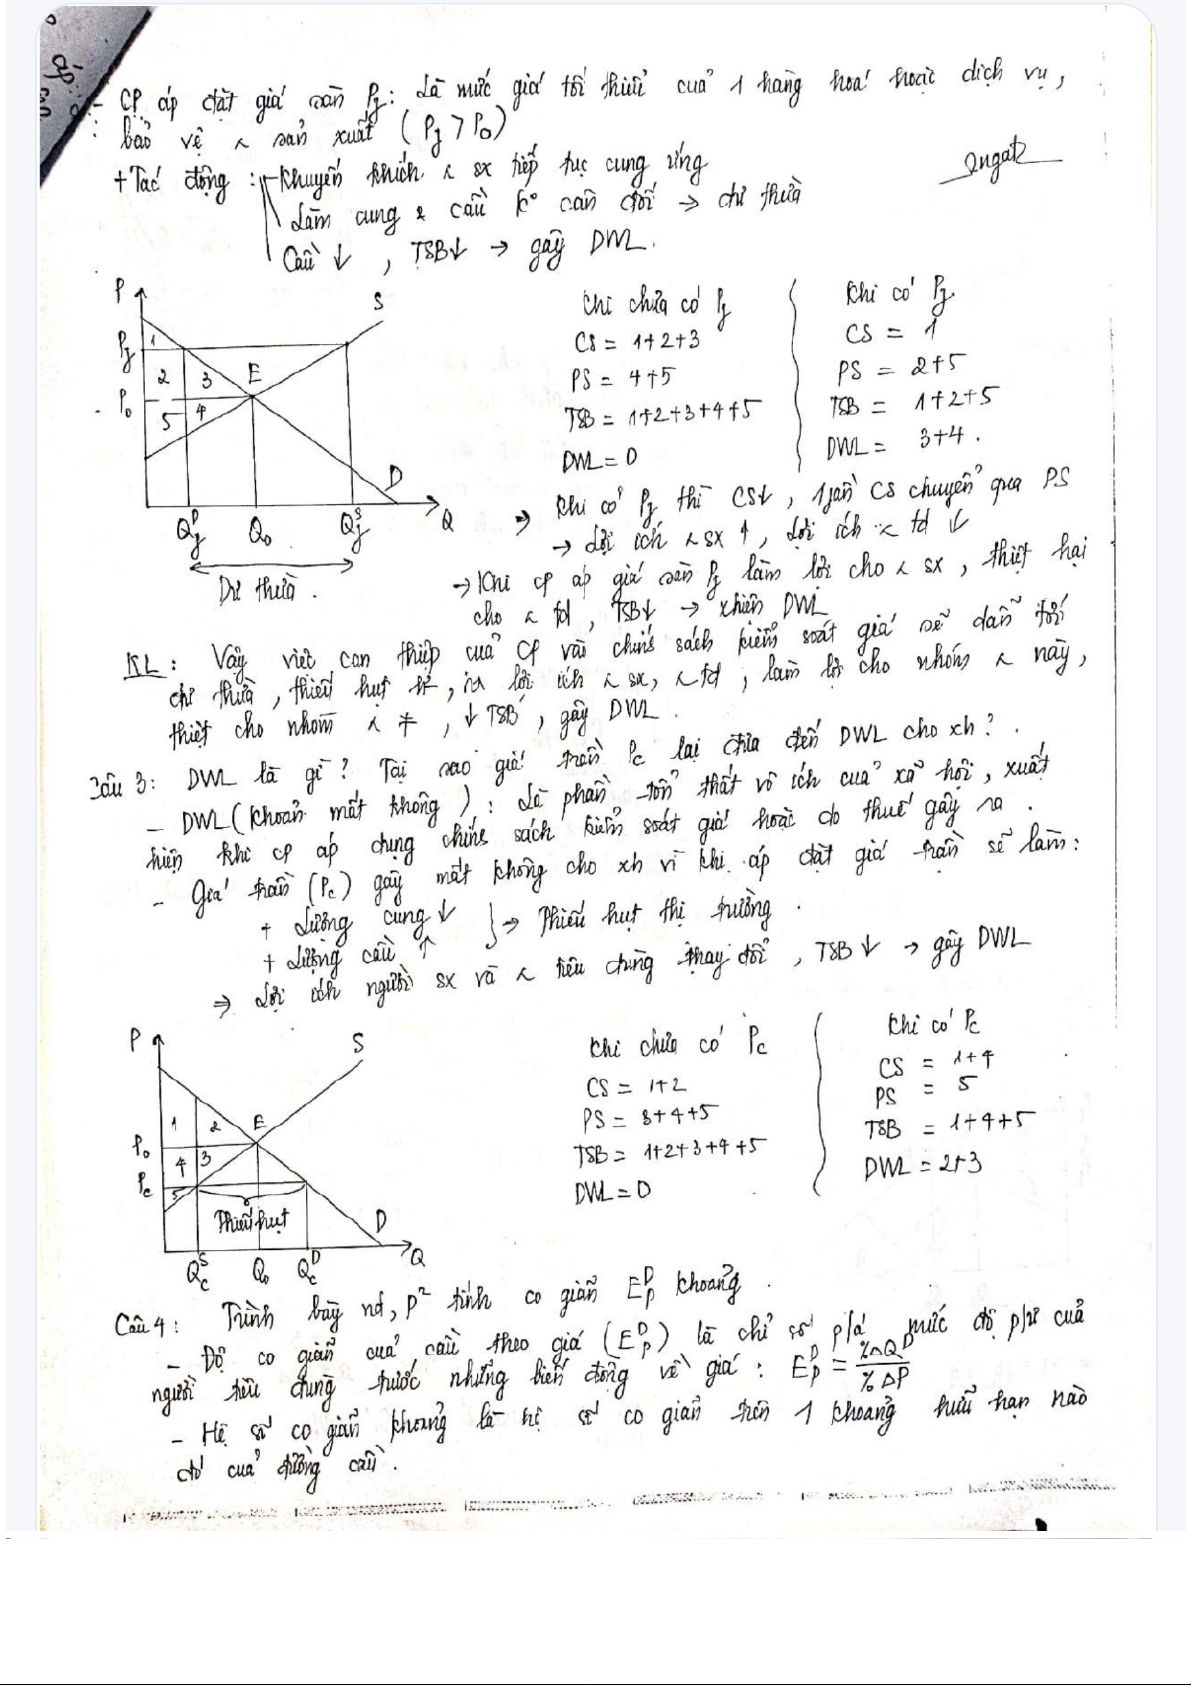 - CP áp đặt giá sàn Pf : Là mức giá tối thiểu của 1 hàng hoá hoặc dịch vụ,
bảo vệ n sản xuất (Pf > P0)
+ Tác động : - Khuyến khích n sx tiếp tục cung ứng
Làm cung & cầu k° cân đối → dư thừa
Cầu ↓ , TSB↓ → gây DWL.
P
S
Pf
1
2
3
E
P0
5
4
D
Q
Qf^D
Q0
Qf^S
Dư thừa .
Khi chưa có Pf
CS = 1+2+3
PS = 4+5
TSB = 1+2+3+4+5
DWL = 0
Khi có Pf
CS = 1
PS = 2+5
TSB = 1+2+5
DWL = 3+4 .
⇒ Khi có Pf thì CS↓ , 1 phần CS chuyển qua PS
→ Lợi ích n sx ↑ , lợi ích n td ↓
→ Khi cp áp giá sàn Pf làm lợi cho n sx , thiệt hại
cho n td , TSB↓ → DWL
KL : Vậy việc can thiệp của CP vào chính sách kiểm soát giá sẽ dẫn tới
dư thừa , thiếu hụt lợi ích n sx, n td , làm lợi cho nhóm n này,
thiệt cho nhóm n ≠ , ↓ TSB , gây DWL .
Câu 3 : DWL là gì ? Tại sao giá trần Pc lại đưa đến DWL cho xh ? .
- DWL (khoản mất không) : Là phần tổn thất vô ích của xã hội , xuất
hiện khi cp áp dụng chính sách kiểm soát giá hoặc do thuế gây ra .
- Giá trần (Pc) gây mất không cho xh vì khi áp đặt giá trần sẽ làm :
+ Lượng cung ↓
+ Lượng cầu ↑
} → Thiếu hụt thị trường .
⇒ Lợi ích người sx và n tiêu dùng thay đổi , TSB ↓ → gây DWL
P
S
1
2
E
P0
4
3
Pc
5
Thiếu hụt
D
Q
Qc^S
Q0
Qc^D
Khi chưa có Pc
CS = 1+2
PS = 3+4+5
TSB = 1+2+3+4+5
DWL = 0
Khi có Pc
CS = 1+4
PS = 5
TSB = 1+4+5
DWL = 2+3
Câu 4 : Trình bày nd, p² tính co giãn Ep^D khoảng .
- Độ co giãn của cầu theo giá (Ep^D) là chỉ số p/á mức độ p/ư của
người tiêu dùng trước những biến động về giá : Ep^D = %ΔQ^D / %ΔP
- Hệ số co giãn khoảng là hệ số co giãn trên 1 khoảng hữu hạn nào
đó của đường cầu .